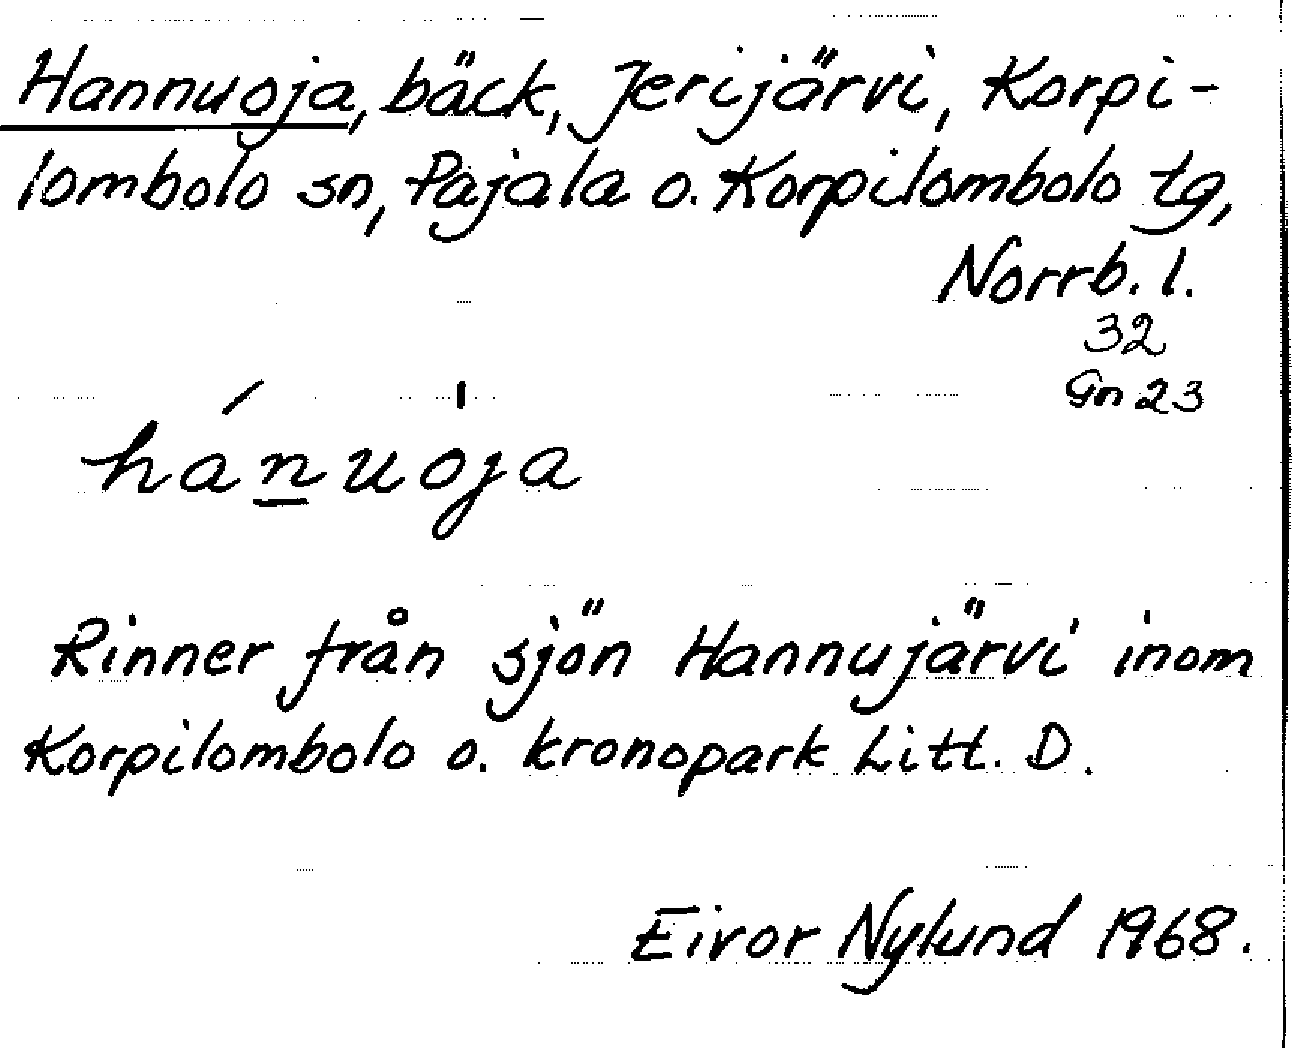 Hannuoja, bäck, Jerijärvi, Korpi-
lombolo sn, Pajala o. Korpilombolo tg,
Norrb. l.
32
Gn 23
hánu̱o̍ja
Rinner från sjön Hannujärvi inom
Korpilombolo o. kronopark Litt. D.
Eivor Nylund 1968.